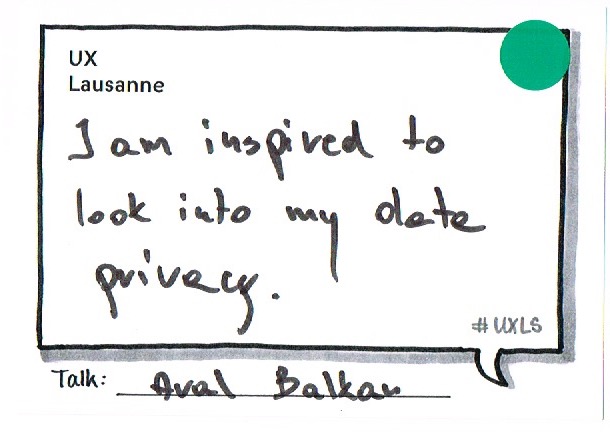 UX
Lausanne
I am inspired to
look into my data
privacy.
#UXLS
Talk: Aral Balkan